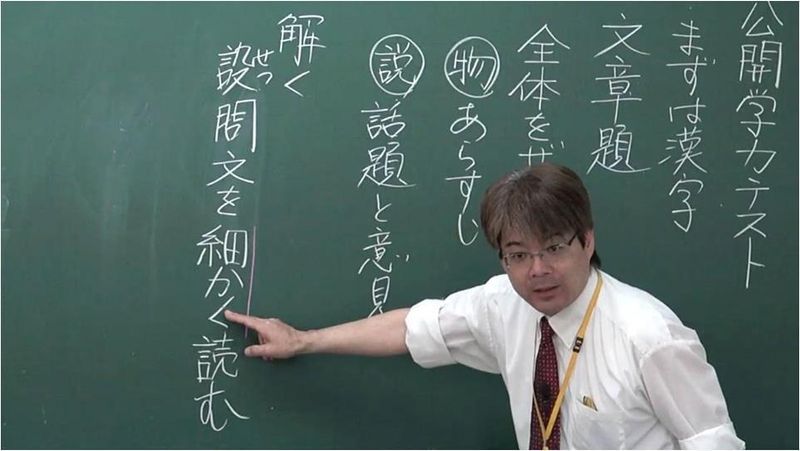 公開学力テスト
まずは漢字
文章題
全体を
物あらすじ
説話題と意見
解く
せつ
設問文を細かく読む